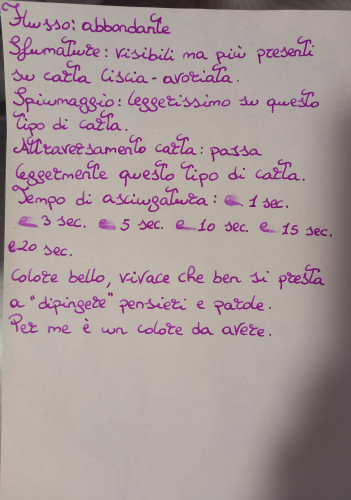 Flusso: abbondante
Sfumature: visibili ma più presenti
su carta liscia-avoriata.
Spiumaggio: leggerissimo su questo
tipo di carta.
Attraversamento carta: passa
leggermente questo tipo di carta.
Tempo di asciugatura: e 1 sec.
e 3 sec. e 5 sec. e 10 sec. e 15 sec.
e 20 sec.
Colore bello, vivace che ben si presta
a "dipingere" pensieri e parole.
Per me è un colore da avere.